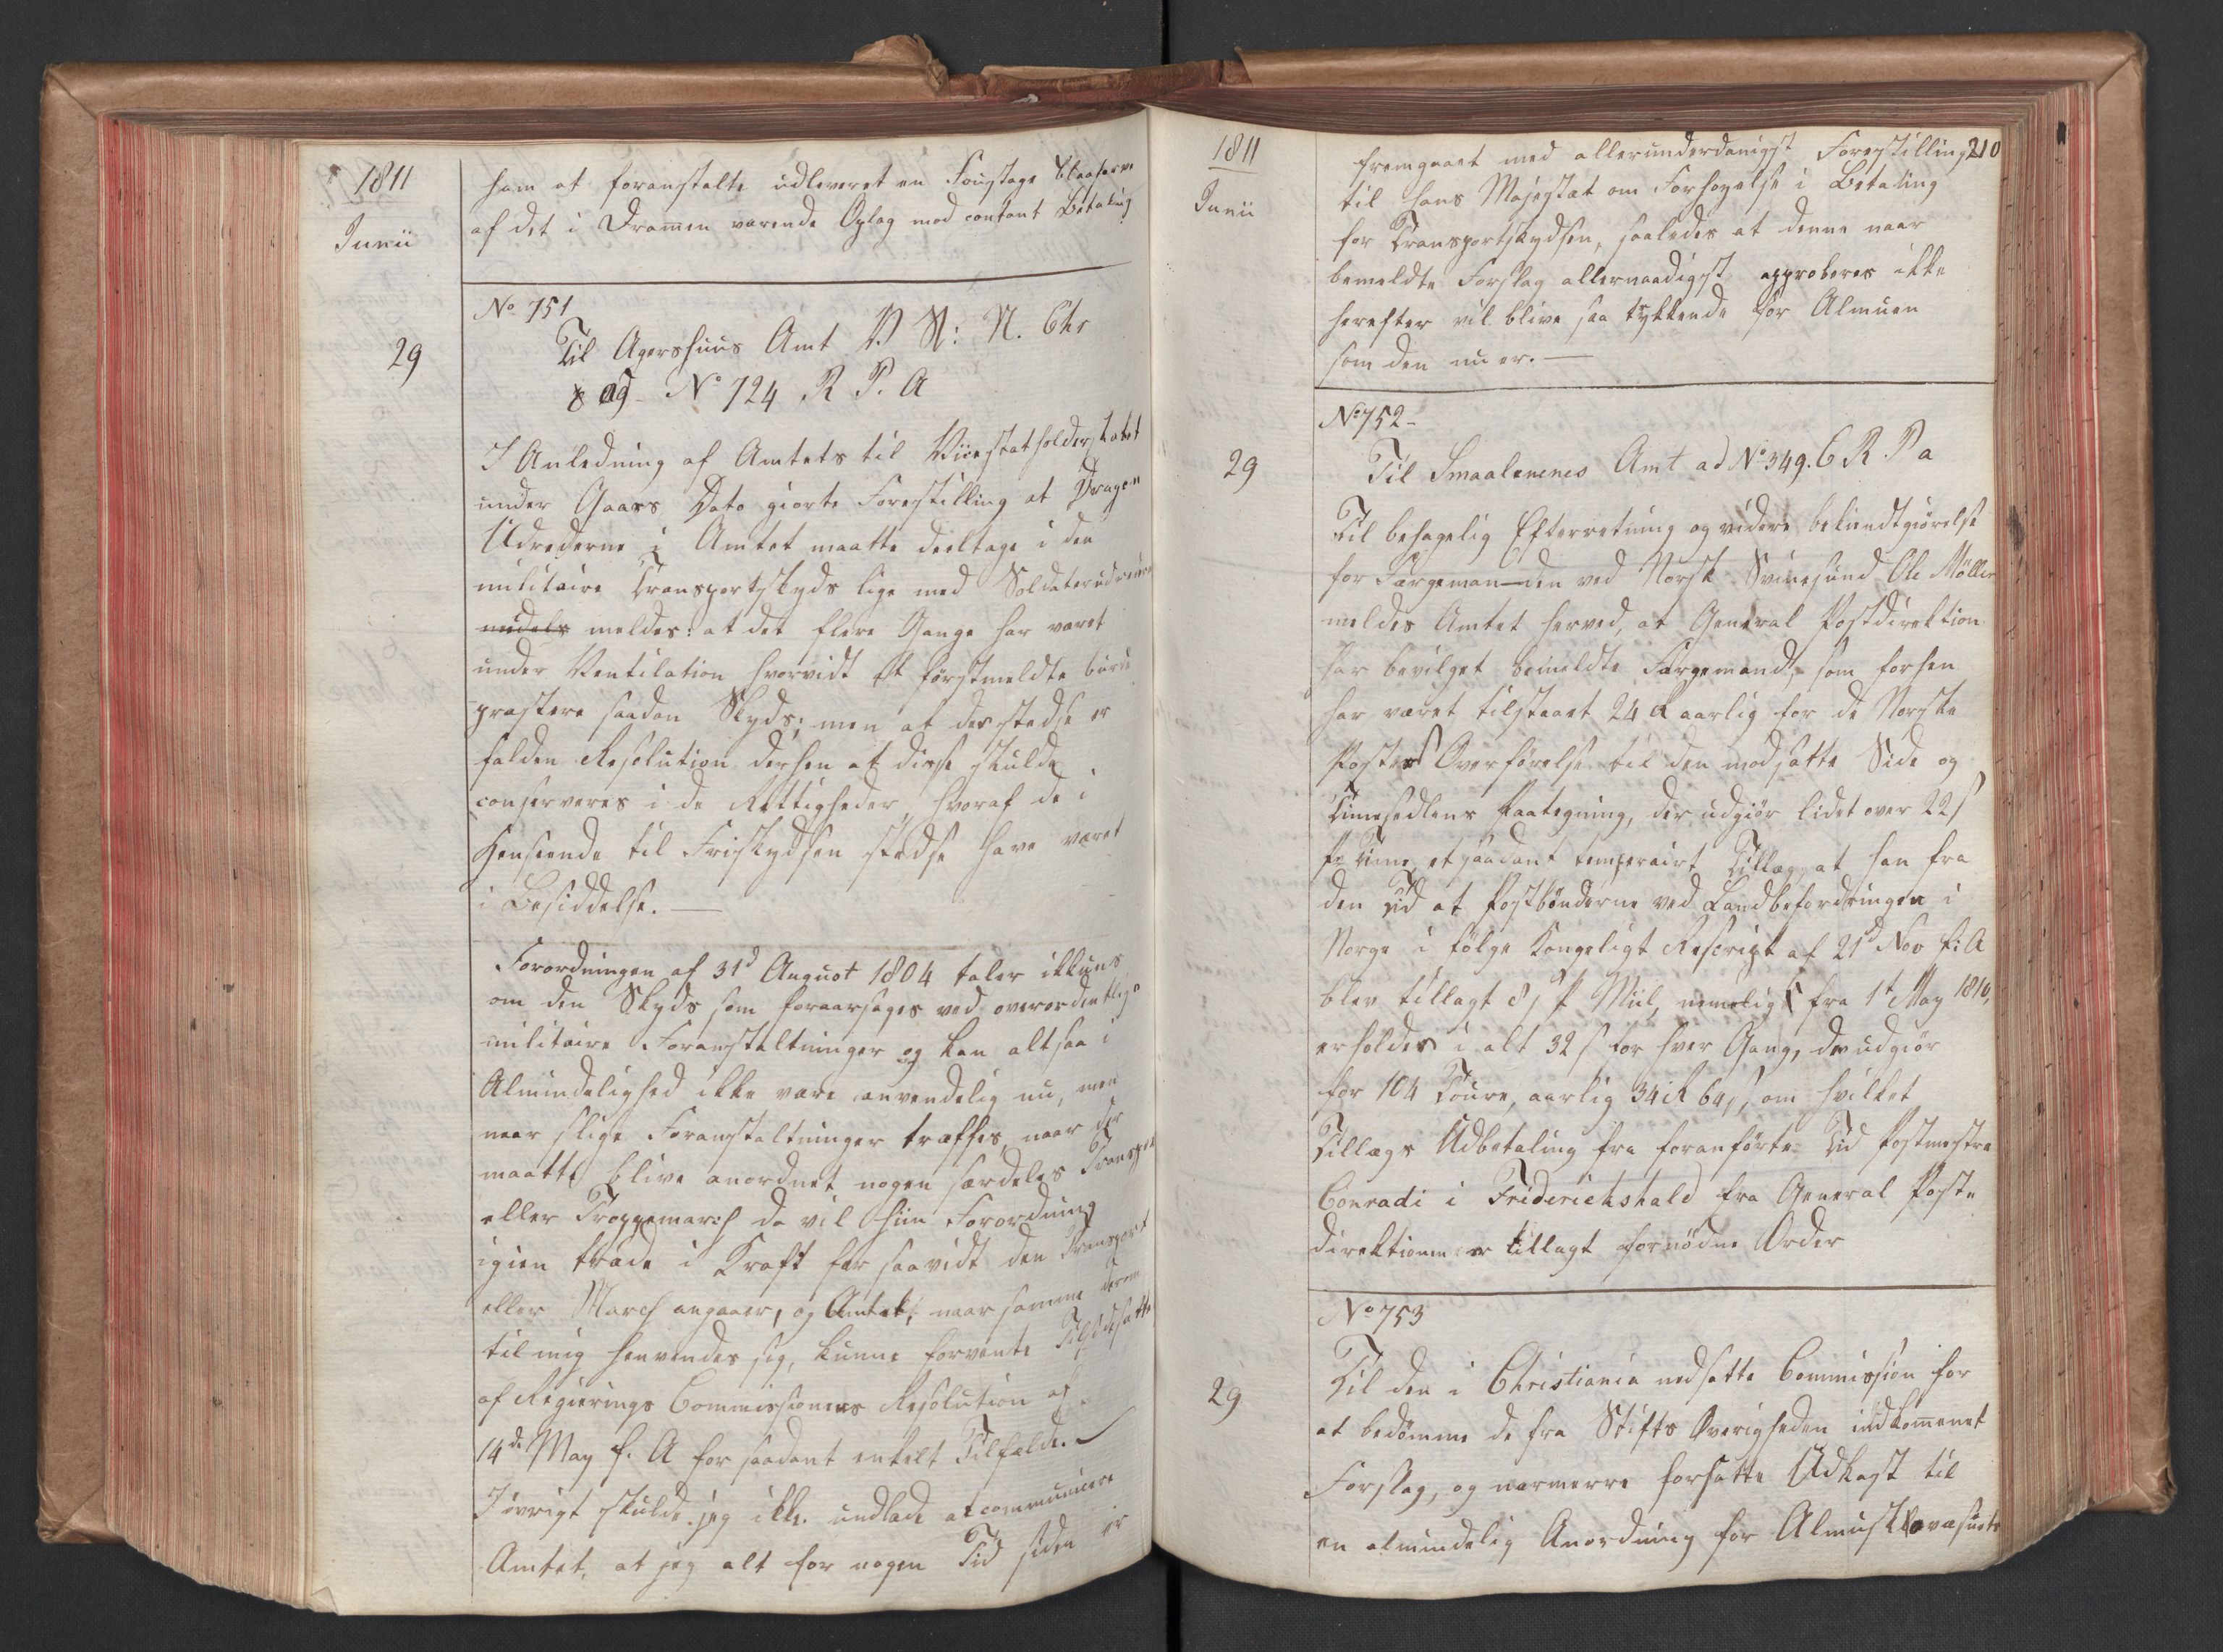 1811
Junii
ham at foranstalte udleveret en Foustage Blaafarve
af det i Dramen værende Oplag mod contant Betaling
No 751
29
Til Agershuus Amt V. St: N. Chr
ag No 724 R P. A
I Anledning af Amtets til Vicestatholderskabet
under Gaars Dato giorte Forestilling at Dragon
Udrederne i Amtet maatte deeltage i den
militaire Transportskyds lige med Soldaterudrederne
meldes: at det flere Gange har været
under Ventilation hvorvidt et førstmeldte burde
præstere saadan Skyds; men at der stedse er
falden Resolution derhen at disse skulde
conserveres i de Rettigheder, hvoraf de i
Henseende til Friskydsen stedse have været
i Besiddelse. —
Forordningen af 31d August 1804 taler ikkuns
om den Skyds som foraarsages ved overordentlige
militaire Foranstaltninger og kan altsaa i
Almindelighed ikke være anvendelig nu, men
naar slige Foranstaltninger træffes, naar der
maatte blive anordnet nogen særdeles Transport
eller Troppemarch da vil hiin Forordning
igien træde i Kraft for saavidt den Transport
eller March angaaer, og Amtet, naar samme derom
til mig henvender sig, kunne forvente Tilsidesatte
af Regierings Commissionens Resolution af
14de May f. A for saadant enkelt Tilfælde.
I øvrigt skulde jeg ikke undlade at communicere
Amtet, at jeg alt for nogen Tid siden er
1811
Junii
210
fremgaaet med allerunderdanigst Forestilling
til Hans Majestæt om Forhøyelse i Betaling
for Transportskydsen, saaledes at denne naar
bemeldte Forslag allernaadigst approberes ikke
herefter vil blive saa trykkende for Almuen
som den nu er. —
No 752-
29
Til Smaalenenes Amt ad No 349. C R. P a
Til behagelig Efterretning og videre bekiendtgiørelse
for Færgeman-den ved Norsk Svinesund Ole Møller
meldes Amtet herved, at General Postdirektion
har bevilget bemeldte Færgemand, som forhen
har været tilstaaet 24 R aarlig for de Norske
Posters Overførelse til den modsatte Side og
Timesedlens Paategning, der udgiør lidet over 22 s
pr Time et saadant temperairt Tillæg, at han fra
den Tid at Postbønderne ved Landbefordringen i
Norge i følge Kongeligt Rescript af 21d Nov f: A
blev tillagt 8 s p Miil, nemelig fra 1t May 1810,
erholder i alt 32 s for hver Gang, der udgiør
for 104 Toure, aarlig 34 R 64 s, om hvilket
Tillægs Udbetaling fra foranførte Tid Postmestre
Conradi i Friderichshald fra General Post-
direktionen er tillagt fornødne Order
No 753
29
Til den i Christiania nedsatte Commission for
at bedømme de fra Stifts Øvrigheden indkomenet
Forslag, og nærmere forfatte Udkast til
en almindelig Anordning for Almueskovæsnets